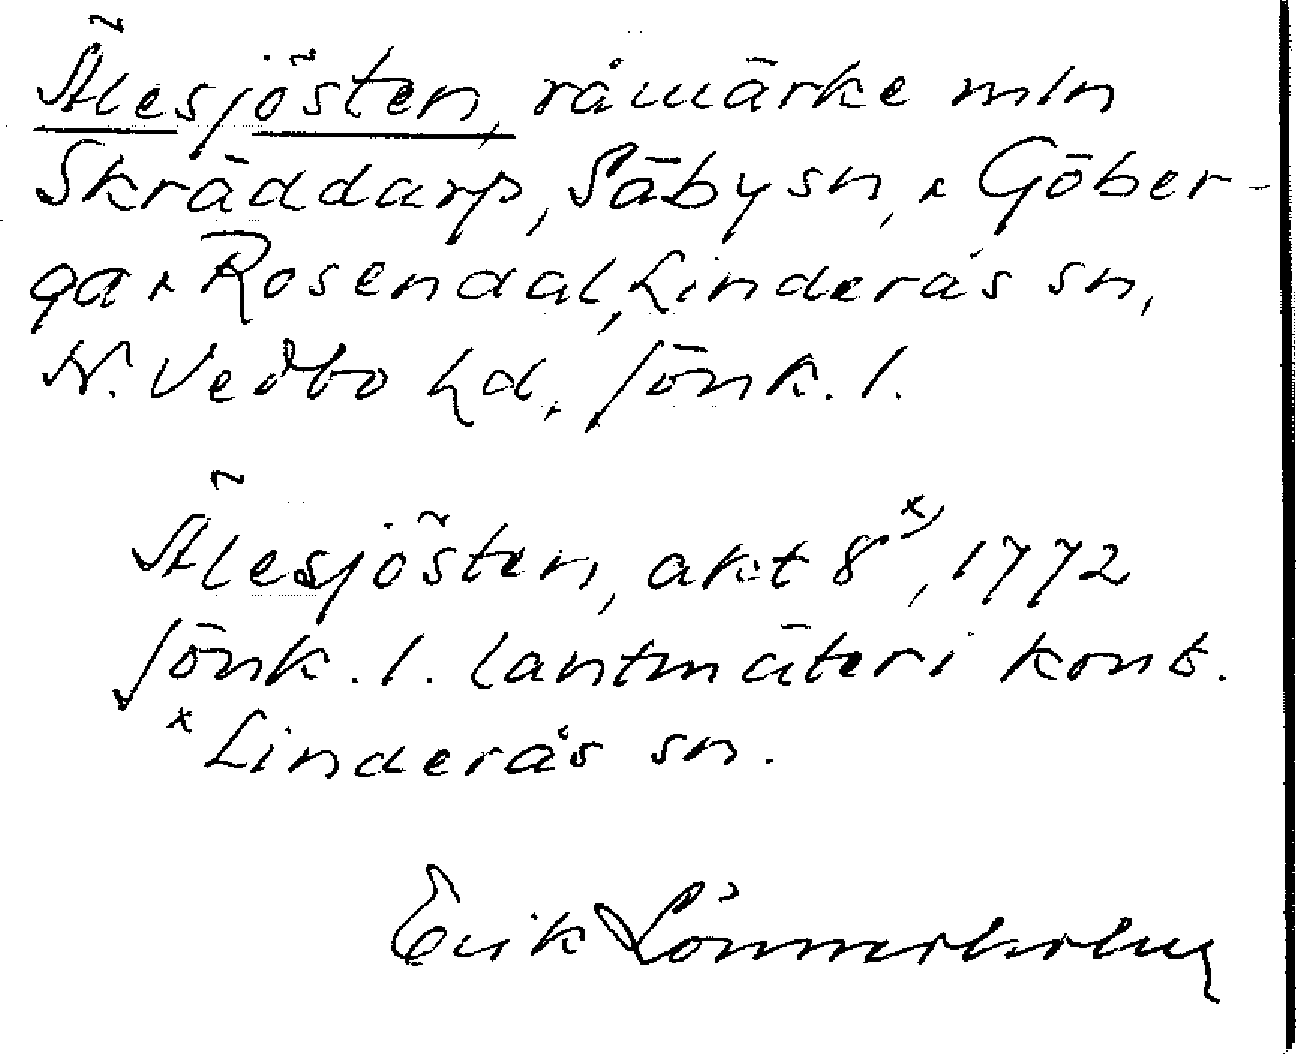 Älesjösten, råmärke mln
Skräddarp, Säby sn, o Göber-
ga o Rosendal, Linderås sn,
N. Vedbo hd, Jönk. l.
Älesjösten, akt 8ˣ⁾, 1772
Jönk. l. lantmäteri kont.
ˣ Linderås sn.
Erik Lönnerholm